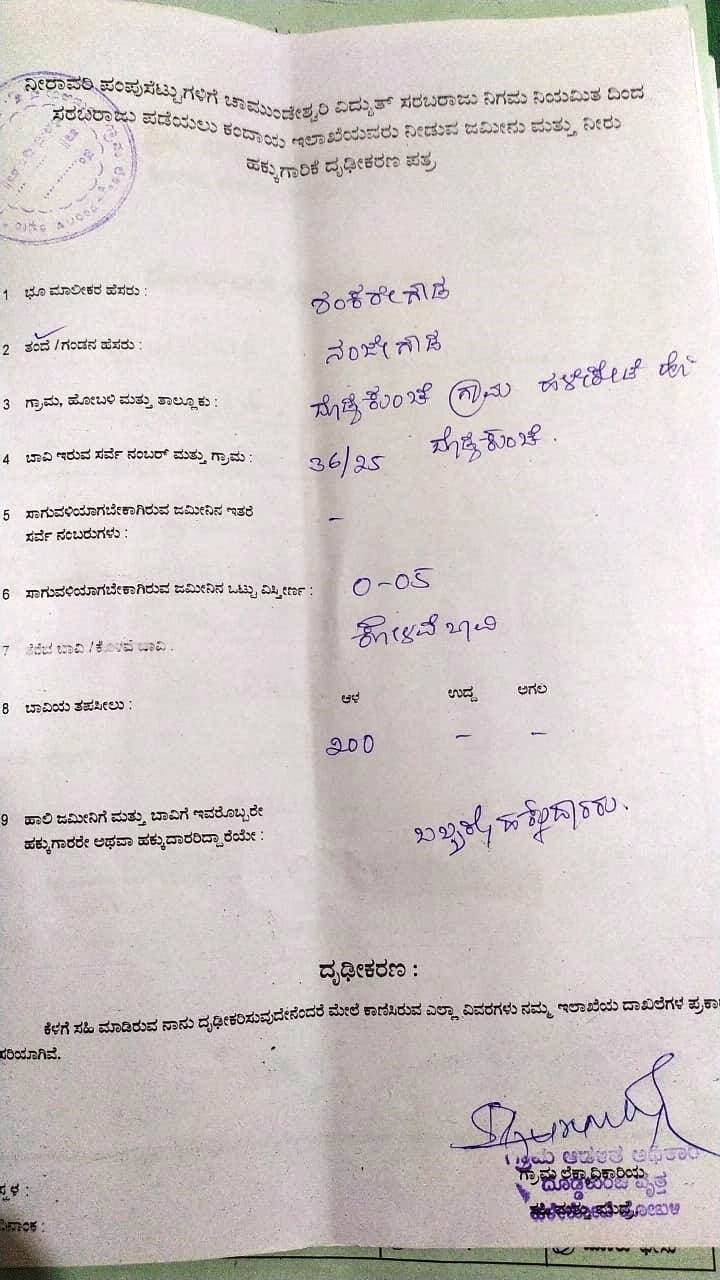 ನೀರಾವರಿ ಪಂಪುಸೆಟ್ಟುಗಳಿಗೆ ಚಾಮುಂಡೇಶ್ವರಿ ವಿದ್ಯುತ್ ಸರಬರಾಜು ನಿಗಮ ನಿಯಮಿತ ದಿಂದ
ಸರಬರಾಜು ಪಡೆಯಲು ಕಂದಾಯ ಇಲಾಖೆಯವರು ನೀಡುವ ಜಮೀನು ಮತ್ತು ನೀರು
ಹಕ್ಕುಗಾರಿಕೆ ದೃಢೀಕರಣ ಪತ್ರ
1 ಭೂ ಮಾಲೀಕರ ಹೆಸರು : ಶಂಕರೇಗೌಡ
2 ತಂದೆ / ಗಂಡನ ಹೆಸರು : ನಂಜೇಗೌಡ
3 ಗ್ರಾಮ, ಹೋಬಳಿ ಮತ್ತು ತಾಲ್ಲೂಕು : ದೊಡ್ಡಕುಂಚೆ ಗ್ರಾಮ ಹಳೇಕೋಟೆ ಹೋ
4 ಬಾವಿ ಇರುವ ಸರ್ವೆ ನಂಬರ್ ಮತ್ತು ಗ್ರಾಮ : 36/25 ದೊಡ್ಡಕುಂಚೆ.
5 ಸಾಗುವಳಿಯಾಗಬೇಕಾಗಿರುವ ಜಮೀನಿನ ಇತರೆ -
ಸರ್ವೆ ನಂಬರುಗಳು :
6 ಸಾಗುವಳಿಯಾಗಬೇಕಾಗಿರುವ ಜಮೀನಿನ ಒಟ್ಟು ವಿಸ್ತೀರ್ಣ : 0-05
7 ತೆರೆದ ಬಾವಿ / ಕೊಳವೆ ಬಾವಿ : ಕೊಳವೆ ಬಾವಿ
8 ಬಾವಿಯ ತಪಸೀಲು : ಆಳ ಉದ್ದ ಅಗಲ
200 - -
9 ಹಾಲಿ ಜಮೀನಿಗೆ ಮತ್ತು ಬಾವಿಗೆ ಇವರೊಬ್ಬರೇ
ಹಕ್ಕುಗಾರರೇ ಅಥವಾ ಹಕ್ಕುದಾರರಿದ್ದಾರೆಯೇ : ಒಬ್ಬರೇ ಹಕ್ಕುದಾರರು.
ದೃಢೀಕರಣ :
ಕೆಳಗೆ ಸಹಿ ಮಾಡಿರುವ ನಾನು ದೃಢೀಕರಿಸುವುದೇನೆಂದರೆ ಮೇಲೆ ಕಾಣಿಸಿರುವ ಎಲ್ಲಾ ವಿವರಗಳು ನಮ್ಮ ಇಲಾಖೆಯ ದಾಖಲೆಗಳ ಪ್ರಕಾ
ಸರಿಯಾಗಿವೆ.
ಗ್ರಾಮ ಆಡಳಿತ ಅಧಿಕಾರಿ
ಗ್ರಾಮ ಲೆಕ್ಕಾಧಿಕಾರಿಯ
ವೃತ್ತ